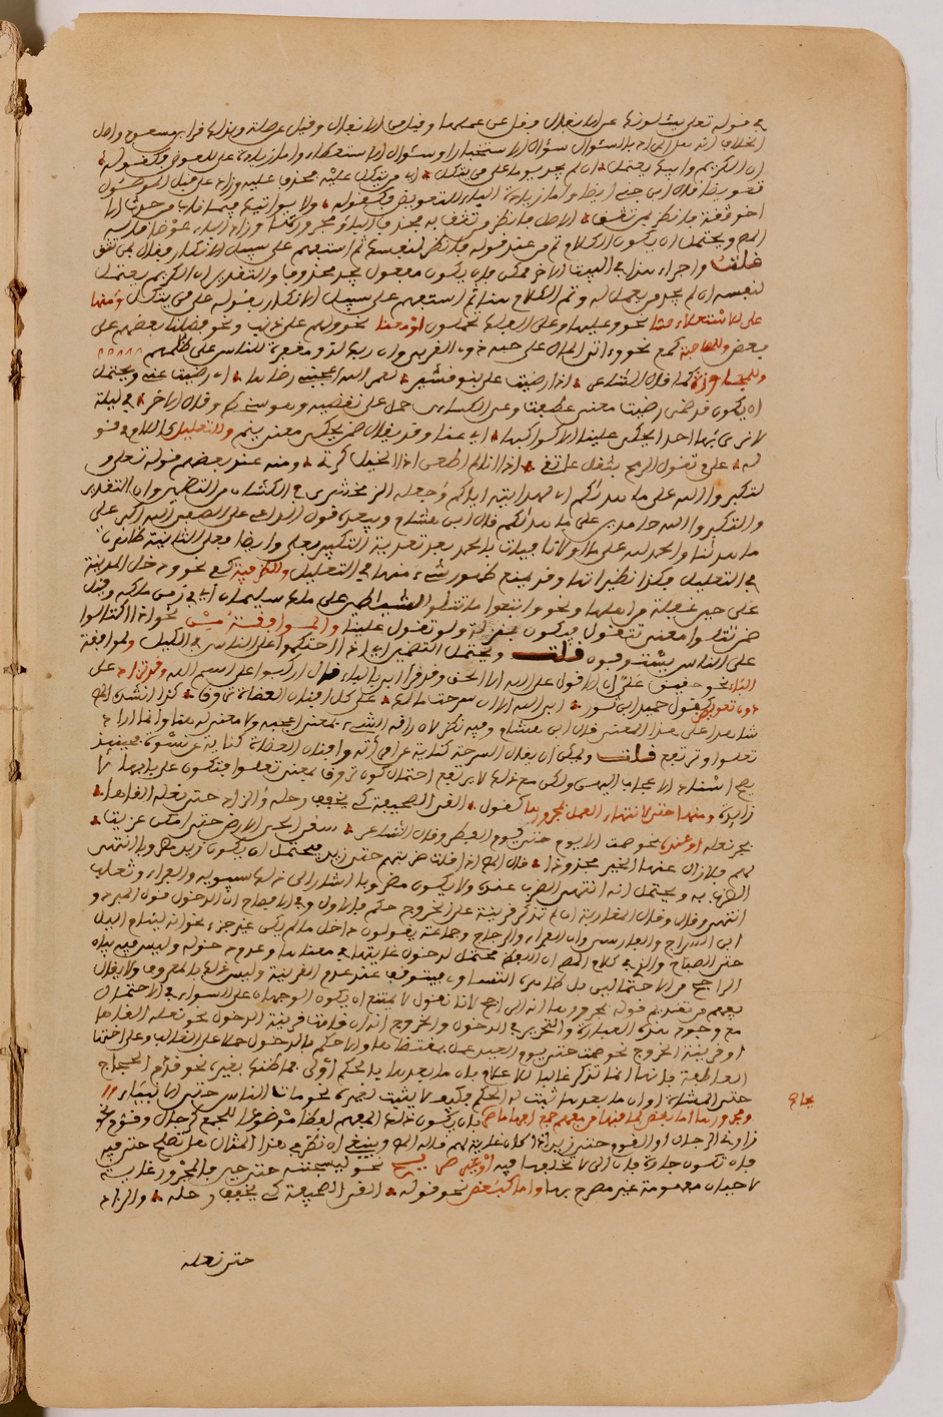 في قوله تعلى يسئلونك عن الانفال وقيل عن عملها وقيل من الانفال وقيل عن صلة وبذلك قرأ ابن مسعود واصل
الخلاف انه هل المراد بالسؤال سؤال الاستخبار او سؤال الاستعطاء واما زيادة على للعوض فكقوله
ان الكريم وابيك يعتمل ان لم يجد يوما على من يتكل اي من يتكل عليه فحذف عليه وزاد على قبل الموصول
تعويضا قال ابن جني ايضا واما زيادة الباء للتعويض فكقوله ولا يواتيك فيما ناب من حدث الا
اخو ثقة فانظر بمن تثق الاصل فانظر من تثق به فحذف الباء ومجرورها وزاد الباء عوضا
ويحتمل ان يكون الكلام تم عند قوله فانظر لنفسك ثم استفهم على سبيل الانكار فقال بمن تثق
قلت واجراء هذا في البيت الاخر ممكن بان يكون مفعول يجد محذوفا والتقدير ان الكريم يعتمل
لنفسه ان لم يجد من يعمل له وتم الكلام هنا ثم استفهم على سبيل الانكار بقوله على من يتكل ومنها
على للاستعلاء حسا نحو وعليها وعلى الفلك تحملون او معنا نحو ولهم على ذنب ونحو فضلنا بعضهم على
بعض وللمصاحبة كمع نحو وءاتى المال على حبه ذوي القربى وان ربك لذو مغفرة للناس على ظلمهم
وللمجاوزة كما قال الشاعر اذا رضيت علي بنو قشير لعمر الله اعجبني رضاها اي رضيت عني ويحتمل
ان يكون ضمن رضيت معنى عطفت وعن الكسائي حمل على نقيضه وهو سخط وقال الاخر في ليلة
لا نرى بها احدا يحكي علينا الا كواكبها اي عنا وقد يقال ضمن يحكي معنى ينم وللتعليل كاللام في قو
له علام تقول الرمح يثقل عاتقي اذا انا لم اطعن اذا الخيل كرت ومنه عند بعضهم قوله تعلى و
لتكبروا الله على ما هداكم اي لهدايته اياكم وجعله الزمخشري في الكشاف من التضمين وان التقدير
ولتكبروا الله حامدين على ما هداكم قال ابن هشام ويبعده قول الداعي على الصفا الله اكبر على
ما هدانا والحمد لله على ما اولانا فيات بالحمد بعد تعدية التكبير بعلى وايضا فعلى الثانية ظاهرة
في التعليل فكذا نظيرتها وقد يمنع ظهور شيء منهما في التعليل وللظرفية كفي نحو ودخل المدينة
على حين غفلة من اهلها ونحو واتبعوا ما تتلوا الشياطين على ملك سليمان اي في زمن ملكه وقيل
ضمن تتلوا معنى تتقول فيكون بمنزلة ولو تقول علينا والموافقة من نحو اذا اكتالوا
على الناس يستوفون قلت ويحتمل التضمين اي اذا احتكموا على الناس في الكيل ولموافقة
الباء نحو حقيق على ان لا اقول على الله الا الحق وقد قرأ ابي بالباء قال اركبوا على اسم الله وقد تزاد على
دون تعويض كقول حميد ابن ثور ابى الله الا ان سرحة مالك على كل افنان العضاه تروق كذا انشده
شاهدا على هذا المعنى قال ابن هشام وفيه نظر لان راقه الشيء بمعنى اعجبه ولا معنى له هنا وانما المراد
تعلو او ترتفع قلت ويمكن ان يقال السرحة كناية عن امرأة وافنان العضاه كناية عن نسوة فحينئذ
يصح اسناد الاعجاب اليهن ولكن مع ذلك لا يرتفع احتمال كون تروق بمعنى تعلوا فتكون على بابها لا
زايدة ومنها حتى لانتهاء العمل لمجرورها كقول القى الصحيفة كي يخفف رحله والزاد حتى نعله القاها
بجر نعله او عنده نحو صمت الايام حتى يوم الفطر وقال الشاعر سقى الحيا الارض حتى امكن عزيت
لهم فلا زال عنها الخير مجذوذا قال اذا قلت ضربتهم حتى زيد فيحتمل ان يكون زيد مضروبا انتهى
الضرب به ويحتمل انه انتهى الضرب عنده ولا يكون مضروبا اشار الى ذلك سيبويه والفراء وثعلب
انتهى وقال وقال المغاربة ان لم تذكر قرينة على الخروج حكم بالاول وفي الافصاح ان الدخول قول المبرد و
ابي السراج والفارسي وان الفراء والزجاج وجماعة يقولون داخل ما لم يكن غير جزء نحو انه لينام الليل
حتى الصباح والذي في كلام ان اللفظ محتمل لدخول غايتها في معناها وعدم دخوله وليس فيه بيان
الراجح من الاحتمالين بل ظاهره التساوي فيتوقف عند عدم القرينة وليس ذلك بالمعروف ولا يقال
يفهم من تقديم قوله مجرورها انه الراجح لانا نقول لا يمتنع ان يكون الوجهان على السواء في الاحتمال
مع وجود هذه العبارة والتحرير في الدخول والخروج انه ان قامت قرينة الدخول نحو نعله القاها
او قرينة الخروج نحو صمت حتى يوم العيد عمل بمقتضاها والا حكم بالدخول حملا على الغالب وعلى اختها
العاطفة فانها انما تذكر غالبا للاعلام بان ما بعدها بالحكم اولى مما ظنه بغيره نحو قدم الحجاج
حتى المشاة او ان ما بعدها ثبت له الحكم فكيف لا يثبت لغيره نحو مات الناس حتى الانبياء
ومجرورها اما بعض لما قبلها من مفهم جمع افهاما صريحا بان يكون ذلك المفهم لفظا موضوعا للجمع كرجال وقوم نحو
زارني الرجال او القوم حتى زيد
فان تكون جارة فان الى لا تخلفها فيه او غير صريح نحو ليسجننه حتى حين فالمجرور غاية
لاحيان مفهومة غير مصرح بها واما كبعض نحو قوله القى الصحيفة كي يخفف رحله والزاد
حتى نعله